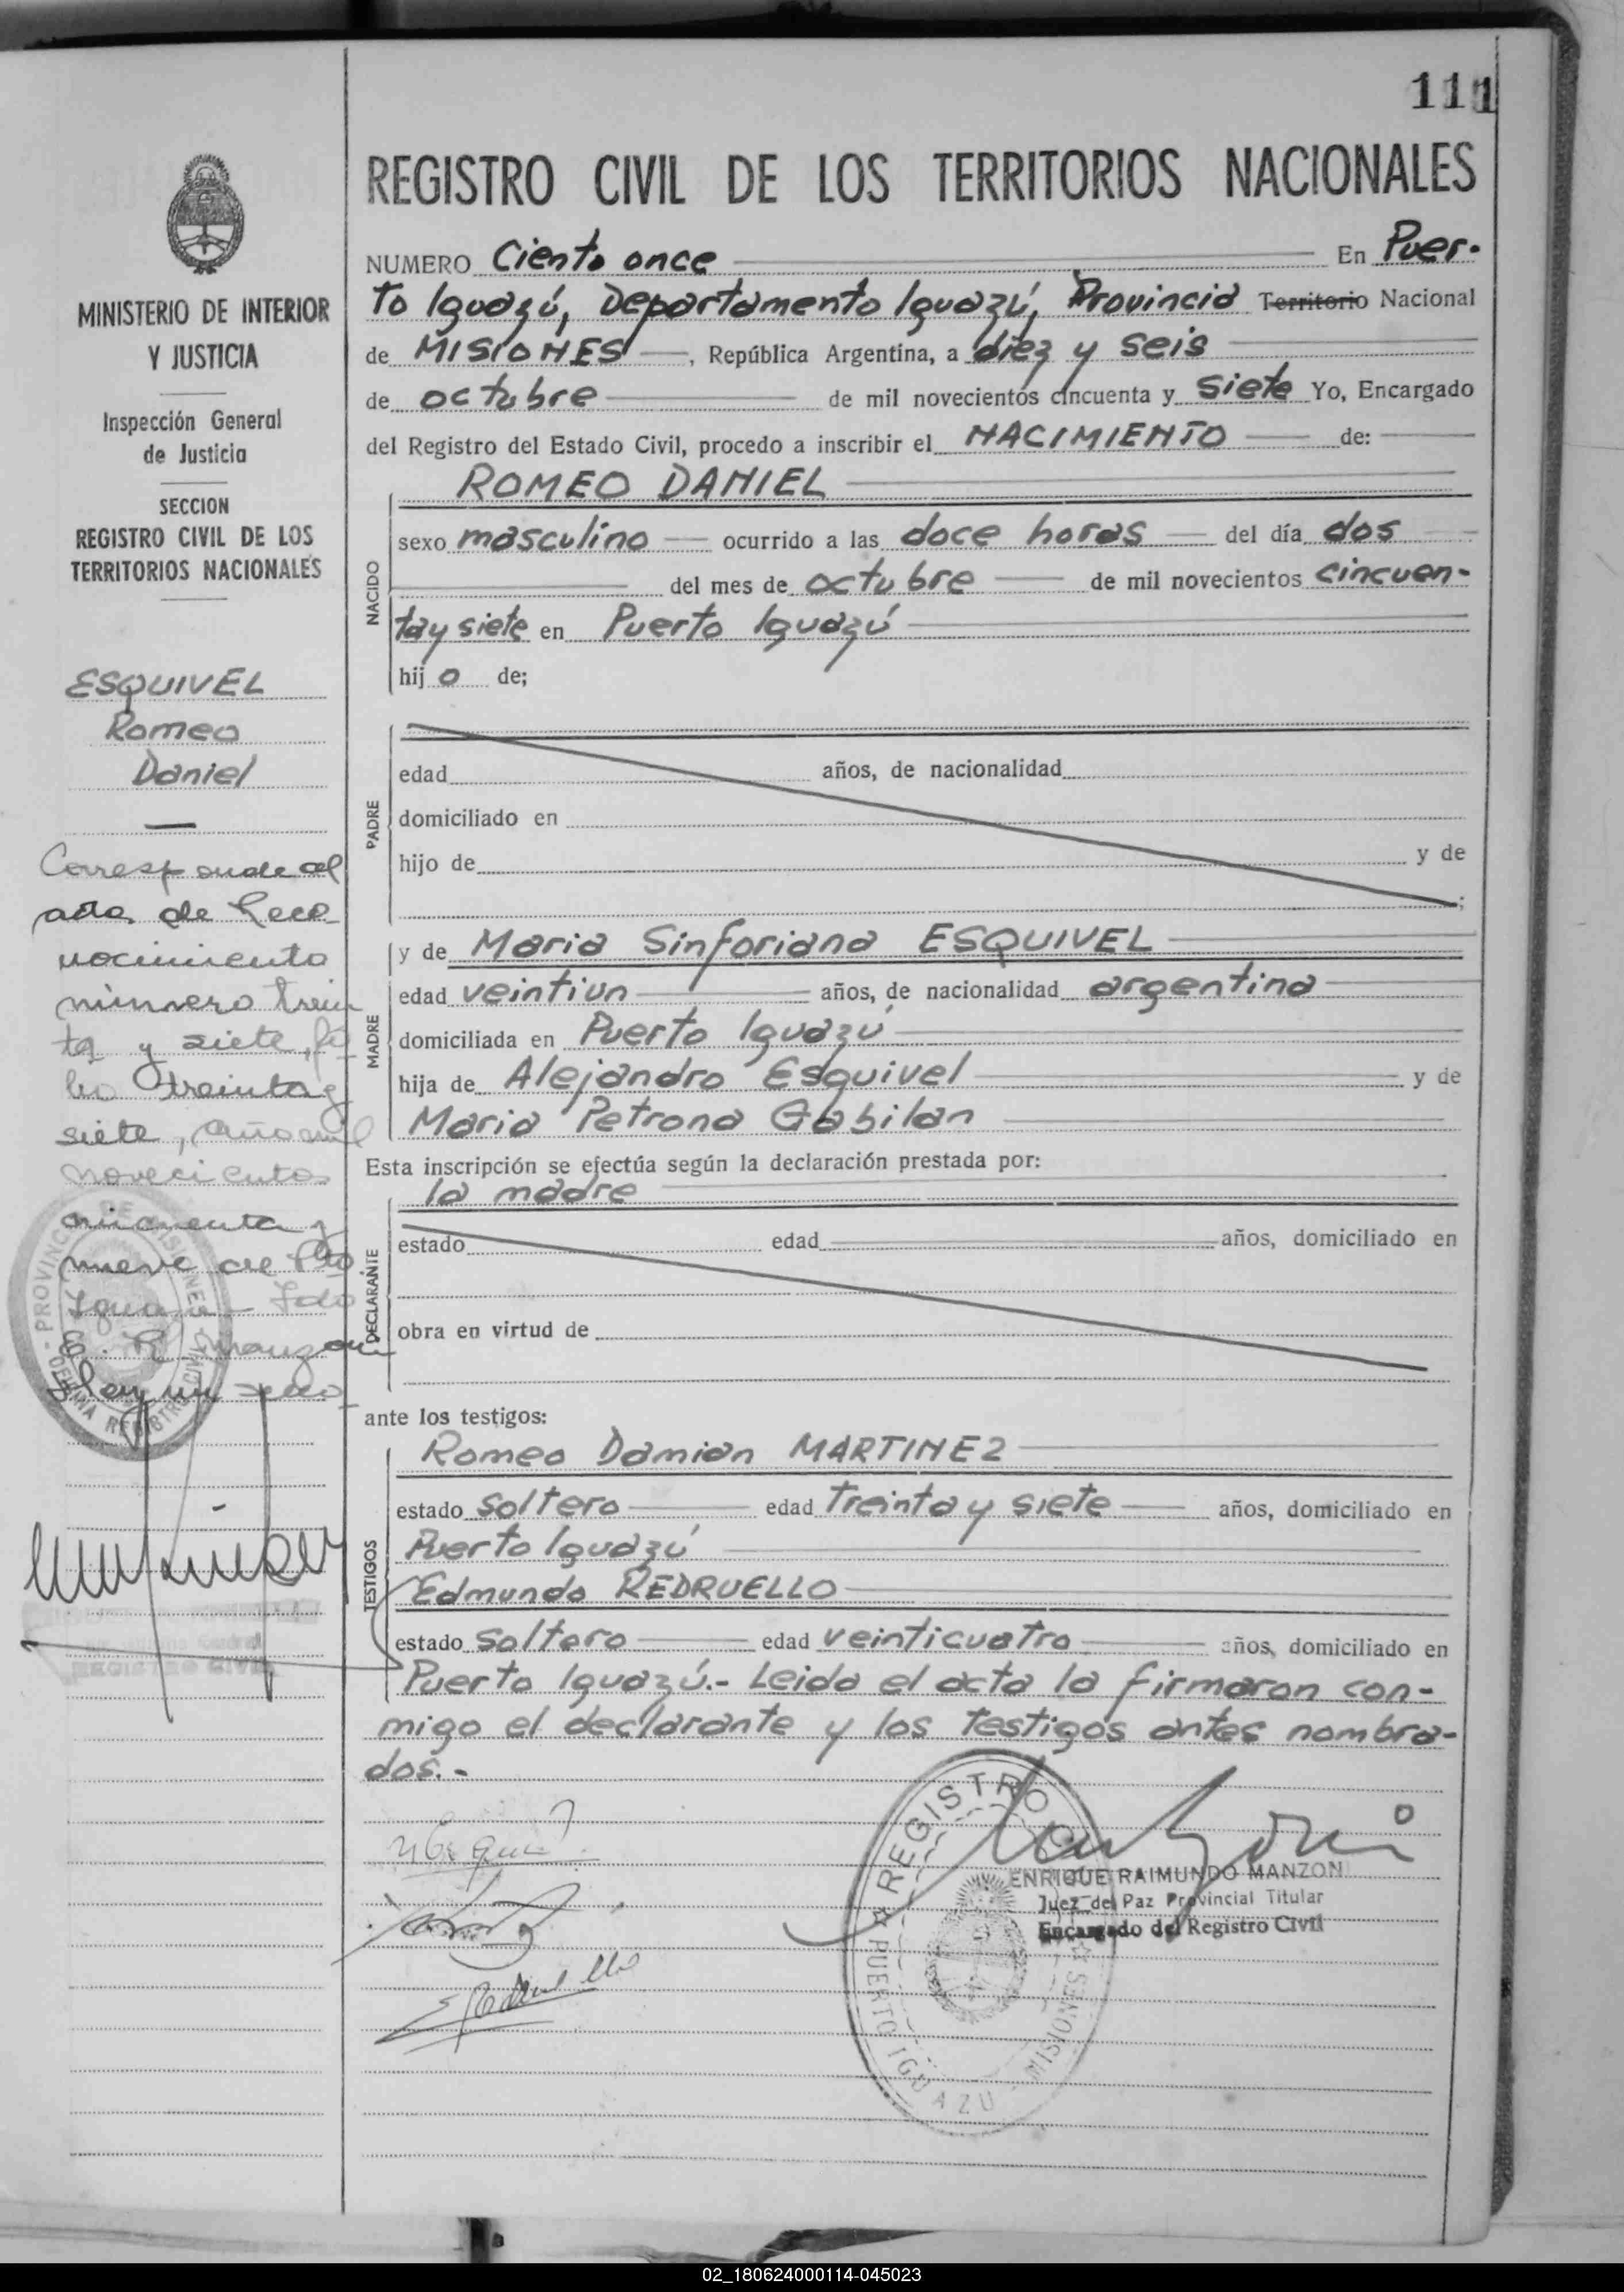 111
REGISTRO CIVIL DE LOS TERRITORIOS NACIONALES
NUMERO Ciento once En Puer-
to Iguazú, Departamento Iguazú, Provincia Territorio Nacional
de MISIONES, República Argentina, a diez y seis
de octubre de mil novecientos cincuenta y siete Yo, Encargado
del Registro del Estado Civil, procedo a inscribir el NACIMIENTO de:
ROMEO DANIEL
NACIDO
sexo masculino ocurrido a las doce horas del día dos
del mes de octubre de mil novecientos cincuen-
ta y siete en Puerto Iguazú
hijo de;
PADRE
edad años, de nacionalidad
domiciliado en
hijo de y de
;
MADRE
y de Maria Sinforiana ESQUIVEL
edad veintiun años, de nacionalidad argentina
domiciliada en Puerto Iguazú
hija de Alejandro Esquivel y de
Maria Petrona Gabilan
Esta inscripción se efectúa según la declaración prestada por:
la madre
DECLARANTE
estado edad años, domiciliado en
obra en virtud de
ante los testigos:
TESTIGOS
Romeo Damian MARTINEZ
estado soltero edad treinta y siete años, domiciliado en
Puerto Iguazú
Edmundo REDRUELLO
estado soltero edad veinticuatro años, domiciliado en
Puerto Iguazú.- Leida el acta la firmaron con-
migo el declarante y los testigos antes nombra-
dos.-
REGISTRO
PUERTO IGUAZU - MISIONES
ENRIQUE RAIMUNDO MANZONI
Juez de Paz Provincial Titular
Encargado del Registro Civil
MINISTERIO DE INTERIOR
Y JUSTICIA
Inspección General
de Justicia
SECCION
REGISTRO CIVIL DE LOS
TERRITORIOS NACIONALES
ESQUIVEL
Romeo
Daniel
Corresponde al
acta de Reco
nocimiento
número trein
ta y siete, fo
lio treinta y
siete, año mil
novecientos
cincuenta y
nueve de Pto
Fdo
E. R. Manzoni
Hay un sello
PROVINCIA DE MISIONES
REGISTRO CIVIL
02_180624000114-045023